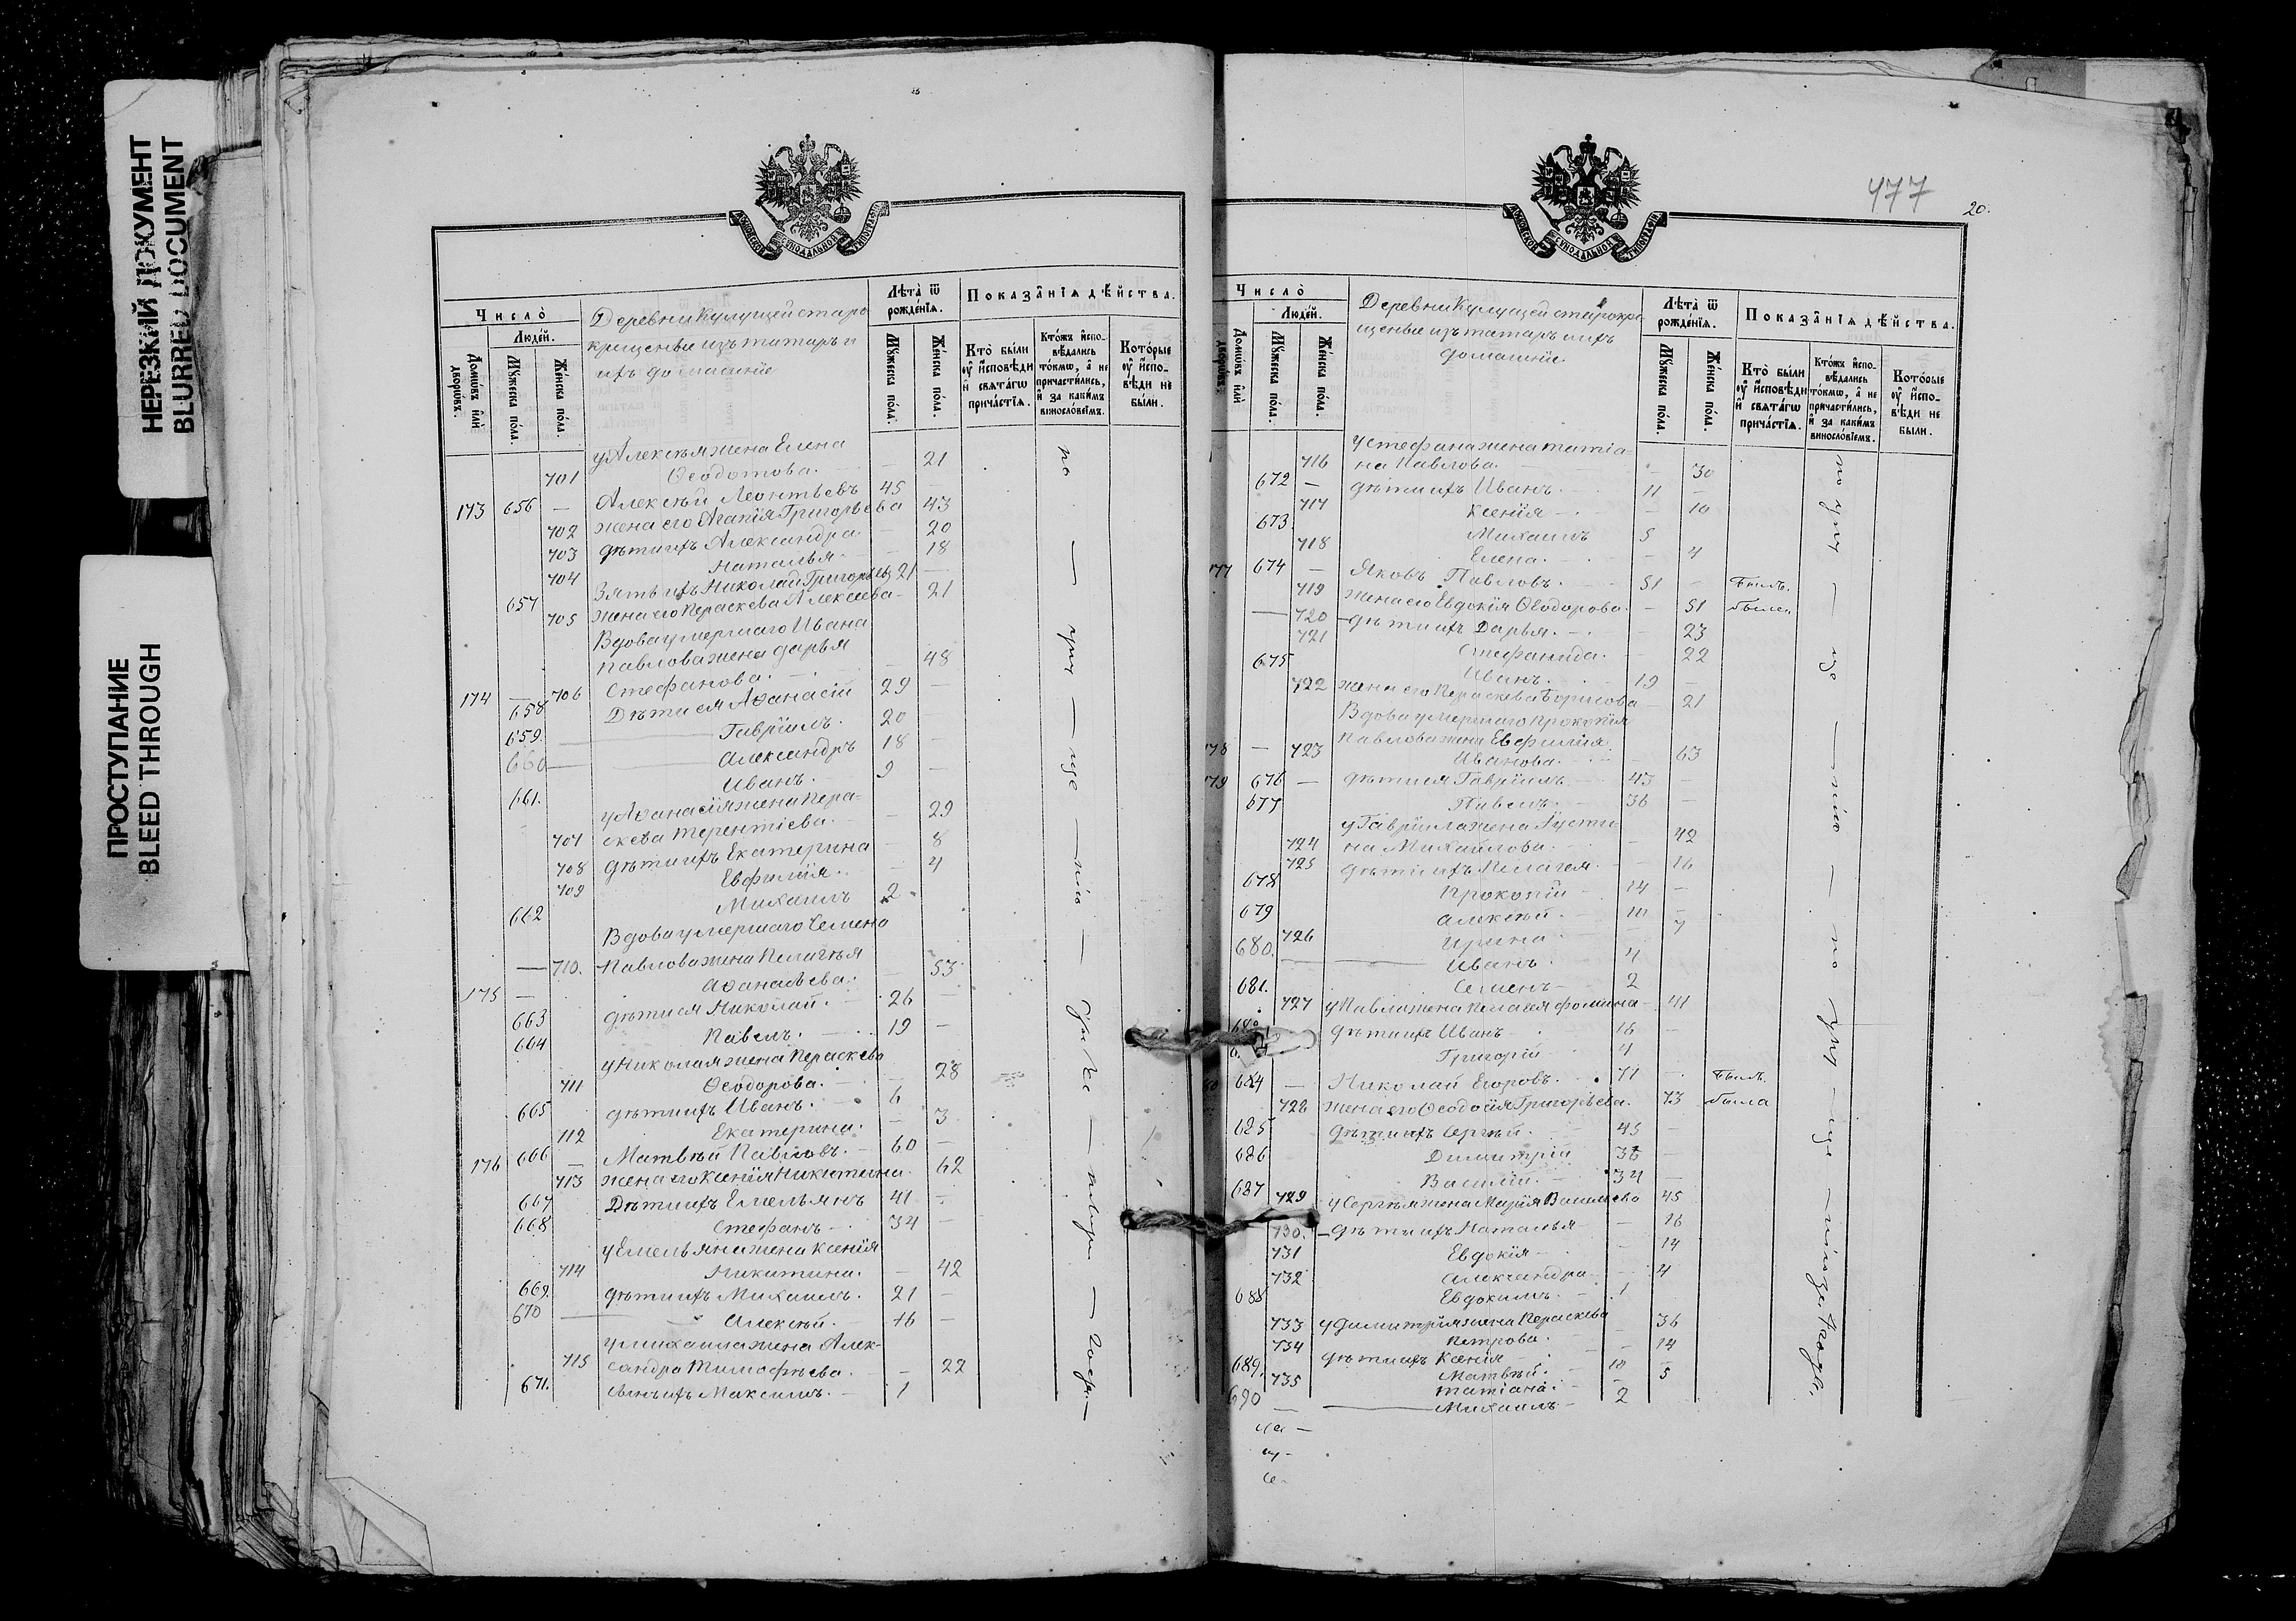 НЕРЕЗКИЙ ДОКУМЕНТ
BLURRED DOCUMENT
ПРОСТУПАНИЕ
BLEED THROUGH
МОСКОВСКОЙ СѴНОДАЛЬНОЙ ТИПОГРАФІИ
Число̀
Люде́й.
Домѡ́въ и҆лѝ дворѡ́въ.
Мꙋ́жеска по́ла.
Же́нска по́ла.
Деревни Кулущей старо
крещеные изъ татаръ и
ихъ домашніе
Лѣта̀ ѿ рожде́нїѧ.
Мꙋ́жеска по́ла.
Же́нска по́ла.
Показа̂нїѧ дѣ́йства.
Кто̀ бы́ли ᲂу҆ и҆́сповѣди и҆ свѧта́гѡ прича́стїѧ.
Кто́жъ и҆сповѣ́дались то́кмѡ, а҆ не причасти́лись, и҆ за каки́мъ винослові́емъ.
Кото́рые ᲂу҆ и҆́сповѣди не бы́ли.
у Алексѣя жена Елена
701 Ѳеодотова. — 21
173 656 — Алексѣй Леонтьевъ 45 —
702 жена его Агапія Григорьева 43
703 дѣти ихъ Александра 20
704 Наталья — 18
657 Зять ихъ Николай Григорьевъ 21 —
705 жена его Параскева Алексеева — 21
Вдова умершаго Ивана
Павлова жена Дарья
174 — 706 Стефанова. — 48
658 Дѣти ея Аѳанасій 29 —
659. Гавріилъ. 20
660 — Александръ 18 —
661. Иванъ. 9 —
у Аѳанасія жена Пера-
707 скева Терентіева. — 29
708 дѣти ихъ Екатерина — 8
709 Евфимія. — 4
662 Михаилъ 2
Вдова умершаго Семена
— 710. Павлова жена Пелагѣя
175 — Аѳанасьева. 53
663 дѣти ея Николай. 26 —
664 Павелъ. 19 —
у Николая жена Пераскева
711 Ѳеодорова. — 28
665 дѣти ихъ Иванъ. 6
712 Екатерина. — 3
176 666 — Матвѣй Павловъ. 60 —
713 жена его Ксенія Никитина. 62
667 Дѣти ихъ Емельянъ 41 —
668 Стефанъ — 34 —
у Емельяна жена Ксенія
714 Никитина. — 42
669. дѣти ихъ Михаилъ. 21 —
670 — Алексѣй. 16 —
у Михаила жена Алек-
715 сандра Тимофѣева. — 22
671. сынъ ихъ Максимъ. — 1
477
20.
МОСКОВСКОЙ СѴНОДАЛЬНОЙ ТИПОГРАФІИ
Число̀
Люде́й.
Домѡ́въ и҆лѝ дворѡ́въ.
Мꙋ́жеска по́ла.
Же́нска по́ла.
Деревни Кулущей старокре
щеные изъ татаръ и ихъ
домашніе.
Лѣта̀ ѿ рожде́нїѧ.
Мꙋ́жеска по́ла.
Же́нска по́ла.
Показа̂нїѧ дѣ́йства.
Кто̀ бы́ли ᲂу҆ и҆́сповѣди и҆ свѧта́гѡ прича́стїѧ.
Кто́жъ и҆сповѣ́дались то́кмѡ, а҆ не причасти́лись, и҆ за каки́мъ винослові́емъ.
Кото́рые ᲂу҆ и҆́сповѣди не бы́ли.
у Стефана жена Татіа-
716 на Павлова. — 30
672 — дѣти ихъ Иванъ. 11 —
717 Ксенія — — 10
673. Михаилъ 5
718 Елена. — 4
177 674 — Яковъ Павловъ. 51 — Былъ.
719 жена его Евдокія Ѳеодорова. — 51 была.
720 дѣти ихъ Дарья. — 23
721 Стефанида. — 22
675 Иванъ. 19 —
722 жена его Пераскева Борисова — 21
Вдова умершаго Прокопія
178 — 723 Павлова жена Евфимія
Иванова. — 63
179 676 — дѣти ея Гавріилъ 43 —
677 Павелъ. 36 —
у Гавріила жена Іусти-
724 на Михайлова. — 42
725 дѣти ихъ Пелагея — 16
678 Прокопій 14 —
679 Алексѣй. —
726 Ирина — 7
680. — Иванъ. 4
681. Семенъ — 2
727 у Павла жена Пелагея Фомина — 41
дѣти ихъ Иванъ — 16 —
Григорій 4
684 — Николай Егоровъ. 71 — Былъ.
728 жена его Ѳеодосія Григорьева. 73 была
685 дѣти ихъ Сергѣй. 45 —
686 Димитрій 36 —
687 Василій. 34 —
729 у Сергѣя жена Марія Васильева 45
730. — дѣти ихъ Наталья — 16
731 Евдокія — — 14
732 Александра — 4
688 Евдокимъ. — 1
733 у Димитрія жена Пераскева
Петрова. 36
734 дѣти ихъ Ксенія — 14
689. Матвѣй. 10 —
735 Татіана. — 5
690 — Михаилъ — 2